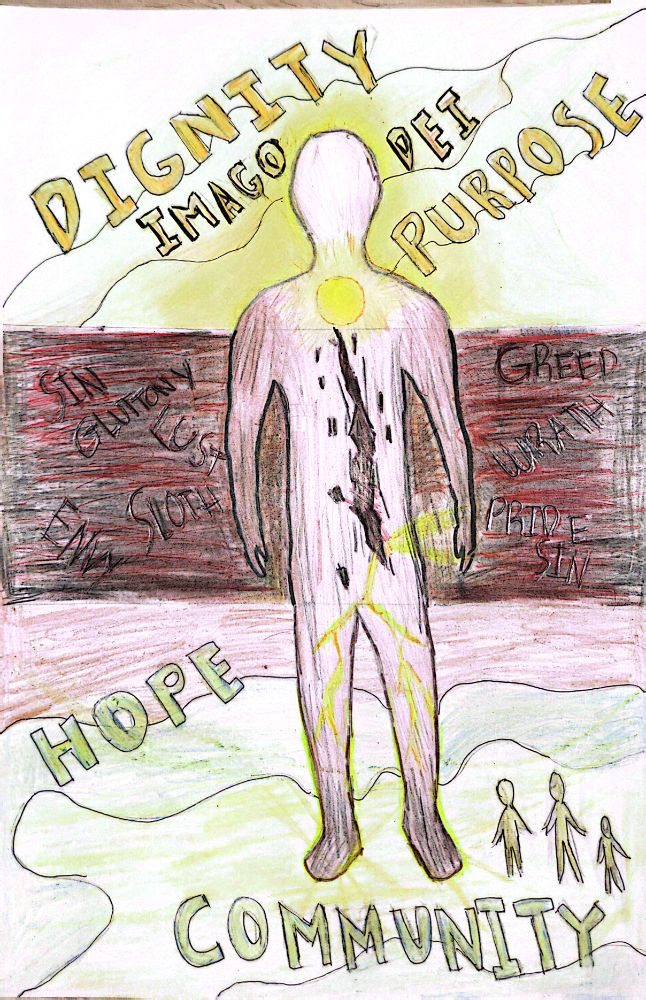 DIGNITY
IMAGO DEI
PURPOSE
SIN
GLUTTONY
LUST
SLOTH
ENVY
GREED
WRATH
PRIDE
SIN
HOPE
COMMUNITY